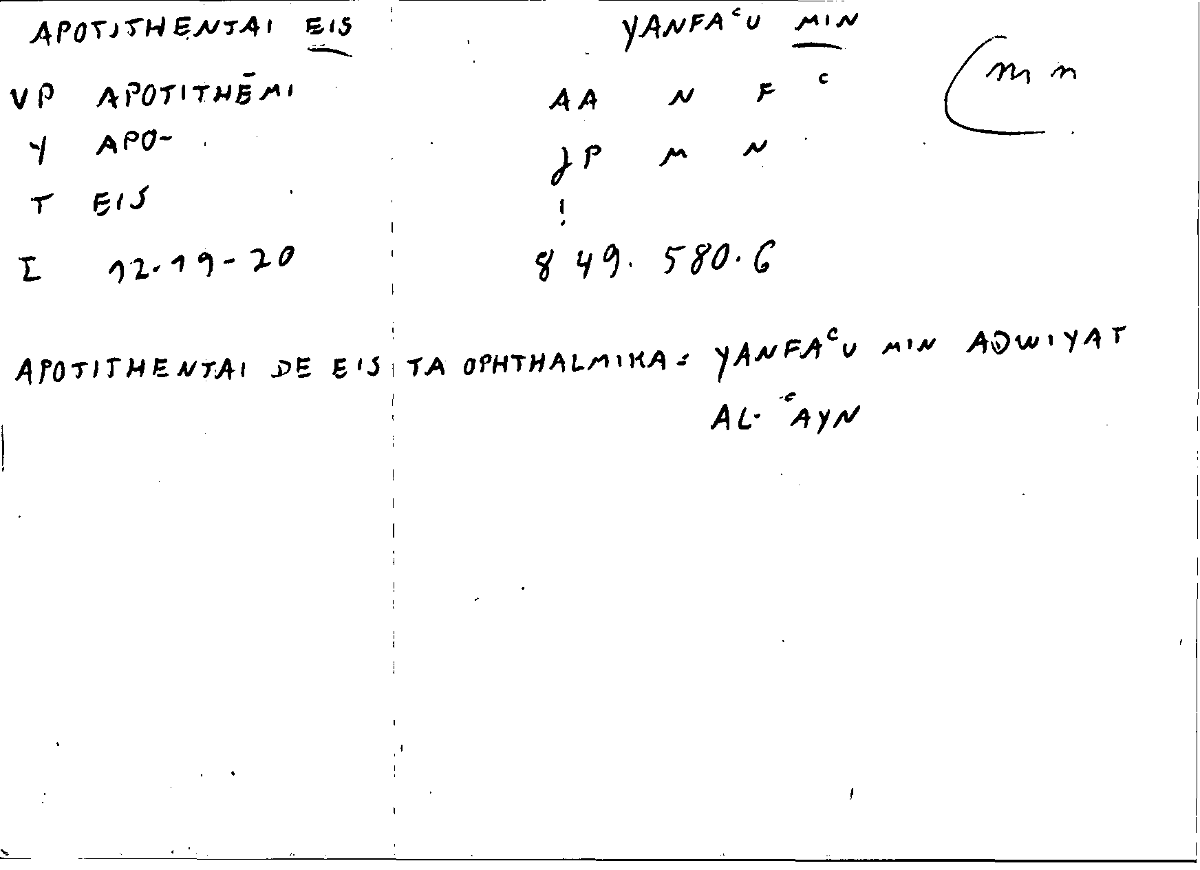 APOTITHENTAI EIS YANFAᶜU MIN
VP APOTITHĒMI AA N F ᶜ (m n
Y APO- JP M N
T EIS !
I 12.19-20 849.580.6
APOTITHENTAI DE EIS TA OPHTHALMIKA = YANFAᶜU MIN ADWIYAT
AL-ᶜAYN